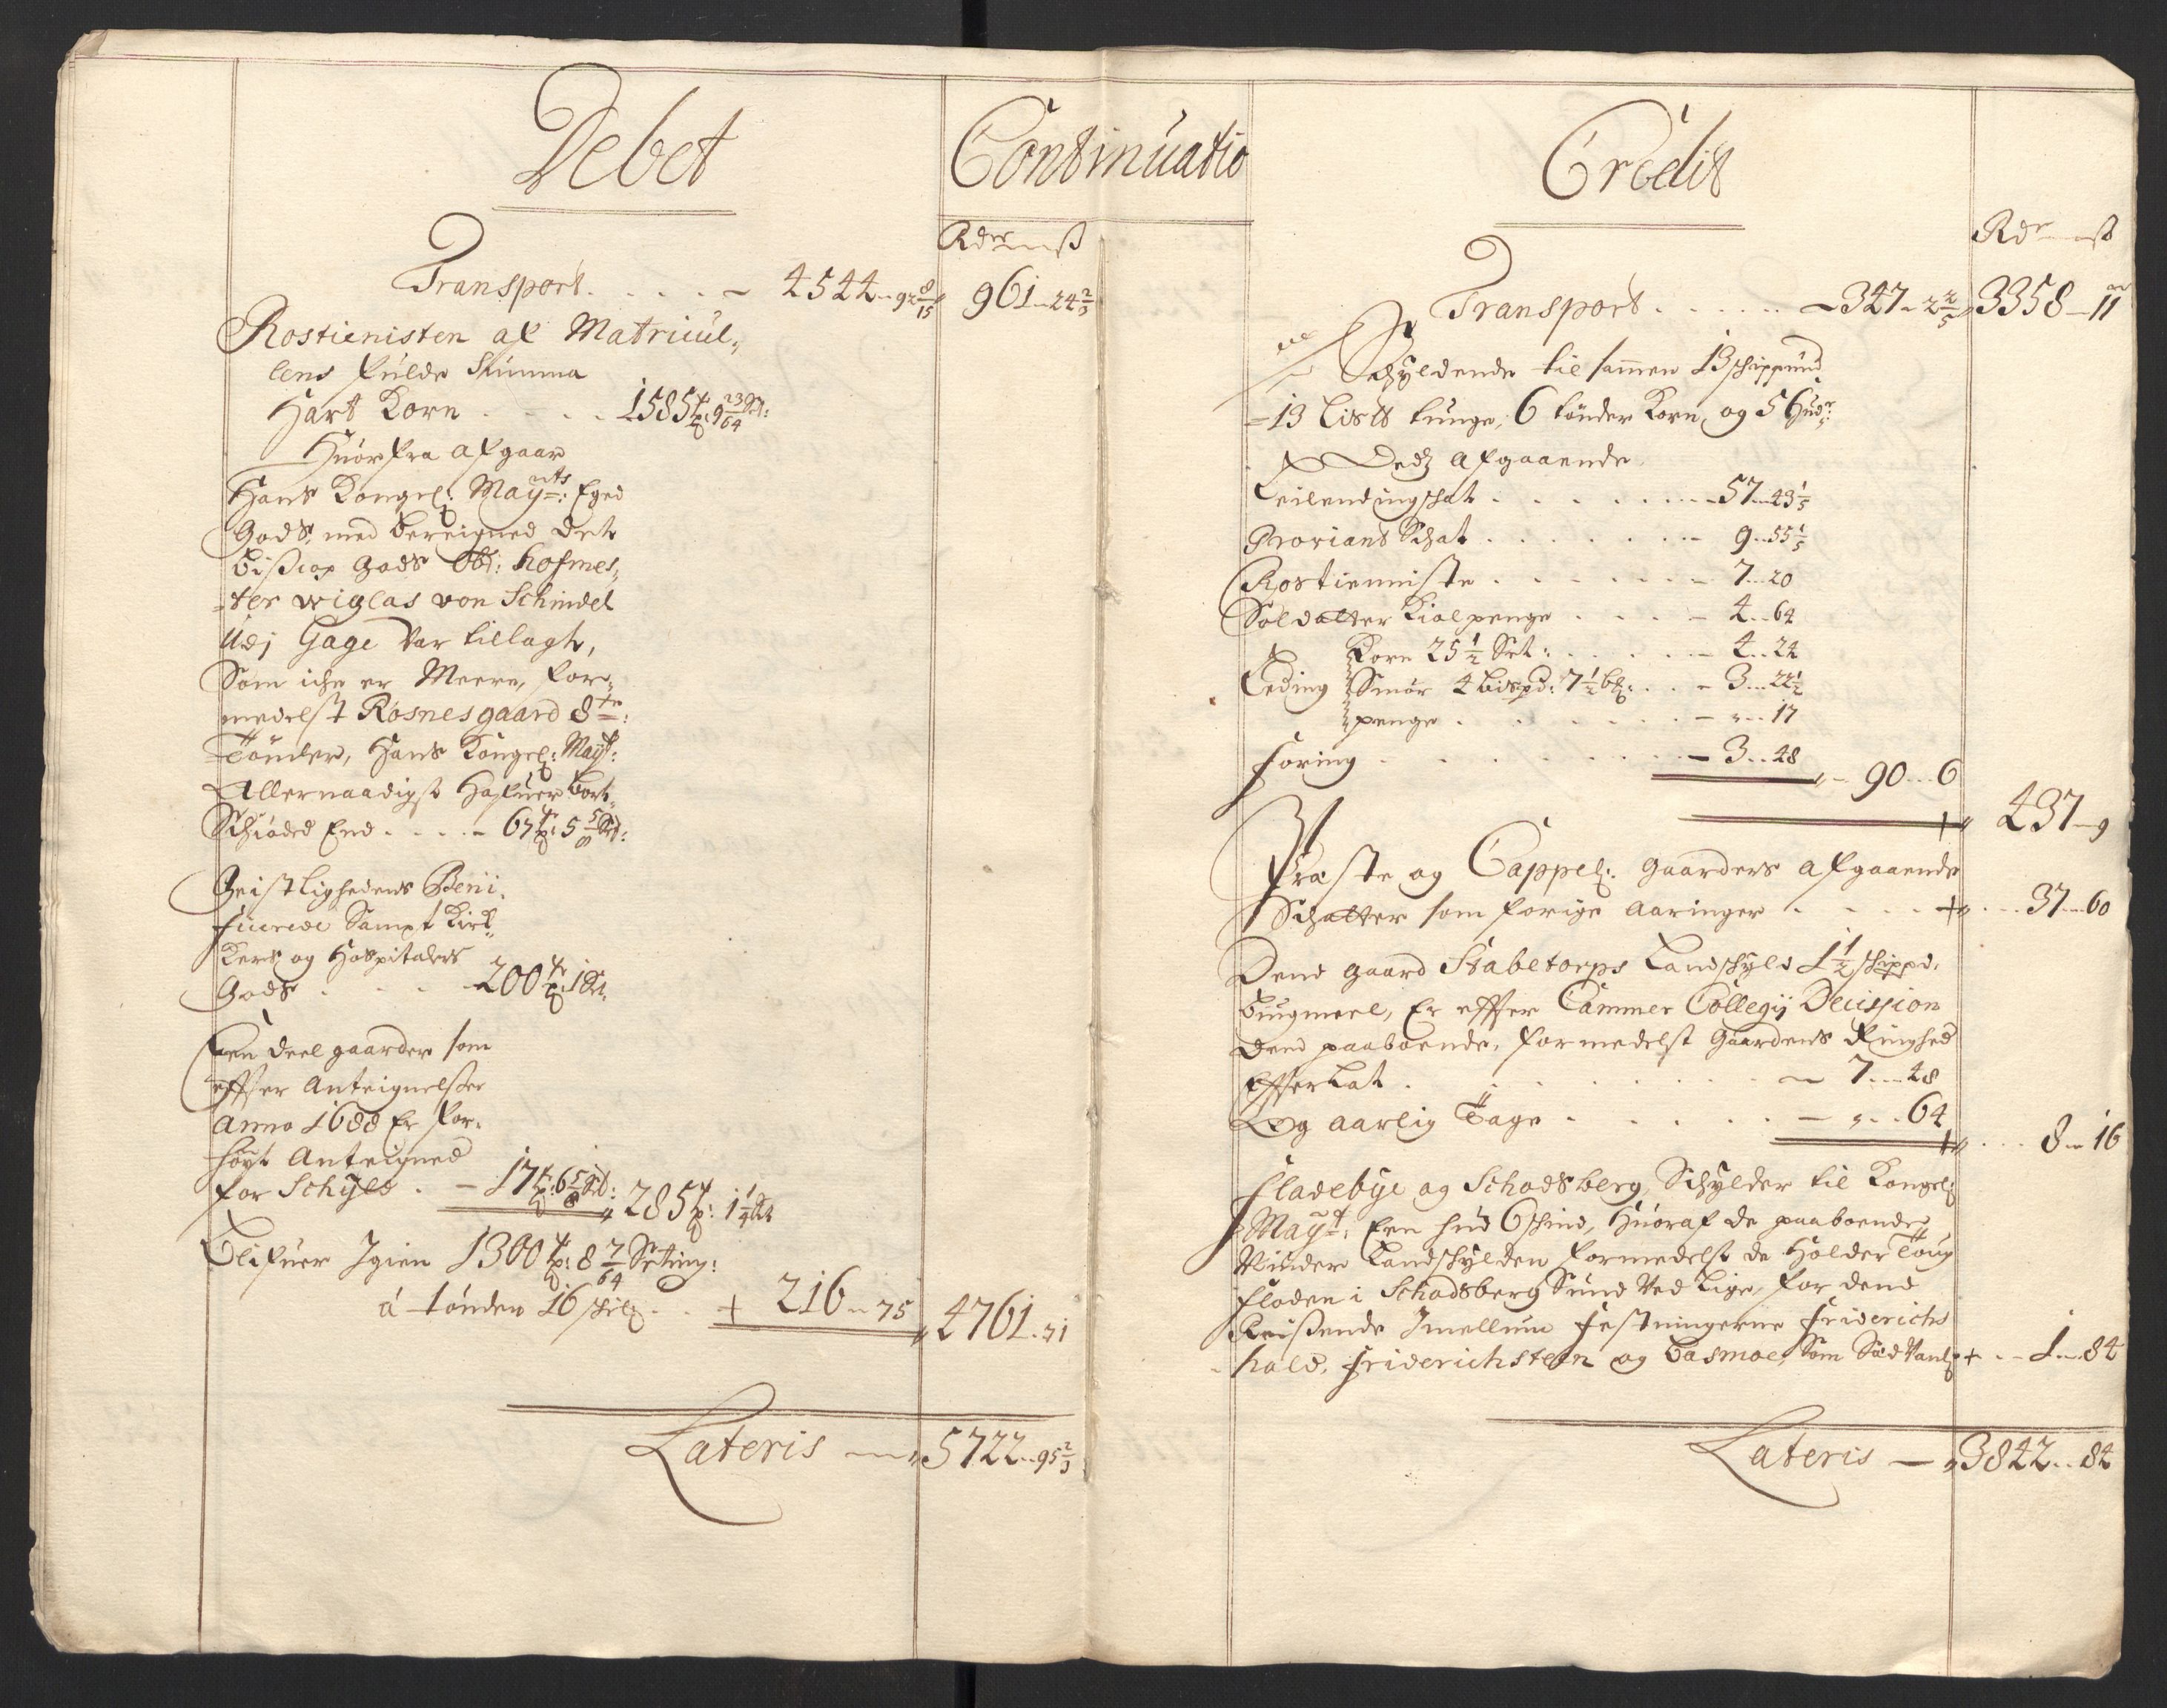 Debet
Continuatio
Rdr ß
Transport . . . . – 4544 – 92 8/15 961 – 24 2/3
Rostienisten af Matricul„
lens fulde Summa
Hart Korn . . . . 1585 tr: 9 23/64 Set:
Huorfra afgaar
Hans Kongel: Mayts: Eged
Gods, med bereigned det
Bischop Gods Obr: hofmes„
ter wiglas von Schindel
Udj Gage var tillagt,
Som iche er Meere, for„
medelst Rosnesgaard 8te:
Tönder, Hans Kongel: Mayt:
Allernaadigst Hafuer bort„
Schiöded End . . . . – 67 tr: 5 5/8 Set:
Geistlighedens Beni„
ficerede Sampt Kirk„
Kers og Hospitalers
Gods . . . – 200 tr: 1 Set:
Een deel gaarder som
effter Anteignelsser
Anno 1688 Er for„
høyt Anteigned
for Schyld . – 17 tr: 6 5/8 Set: 285 tr: 1 1/4 Set
Blifuer Igien 1300 tr: 8 7/64 Setting:
á tönden 16 skil . . + 216 – 75 4761 . 71
Lateris — 5722 . . 95 2/3
Credit
Rdr ß
Transport . . . . . – 347 – 2 2/5 3358 – 11
Schyldende til sammen 13 schippund
13 Lis lb tunge, 6 tönder Korn, og 5 Hudr:
Dedz Afgaaende
Leilendingschat . . . . . . – 57 – 43 1/5
Proviant Schat . . . . . . – 9 – 55 1/5
Rostienniste . . . . . . – 7 – 20
Soldatter Kiolpenge . . . . – 4 – 64
Korn 25 1/2 Set: . . . . – 4 – 24
Leding Smör 4 bispd: 7 1/2 bl: . . – 3 – 22 1/2
penge . . . . . . – „ – 17
Foring . . . . . . . – 3 – 48
– 90 – 6
437 – 9
Præste og Cappel: Gaarders afgaaende
Schatter som forige Aaringer . . . . + . . 37 – 60
Dend gaard Stabetorps Landschyld 1 1/2 schippd.
bugmeel, Er effter Cammer Collegij Decission
dend paaboende, formedelst Gaardens Ringhed
Effterlat . . . . . . . – 7 – 48
Og aarlig Tage . . . . . – „ – 64
. . . 8 – 16
Fladebye og Schodsberg, Schylder til Kongel:
Mayt: Een hud 6 schind, Huoraf de paaboende
Niuder Landschylden formedelst de Holder Toug
floden i Schodsberg Sund Ved Lige, for dend
Reissende Imellum Festningerne Friderichs
hald, Friderichsteen og Basmoe, Som Sædvanl: + . . 1 – 84
Lateris — 3842 . . 84